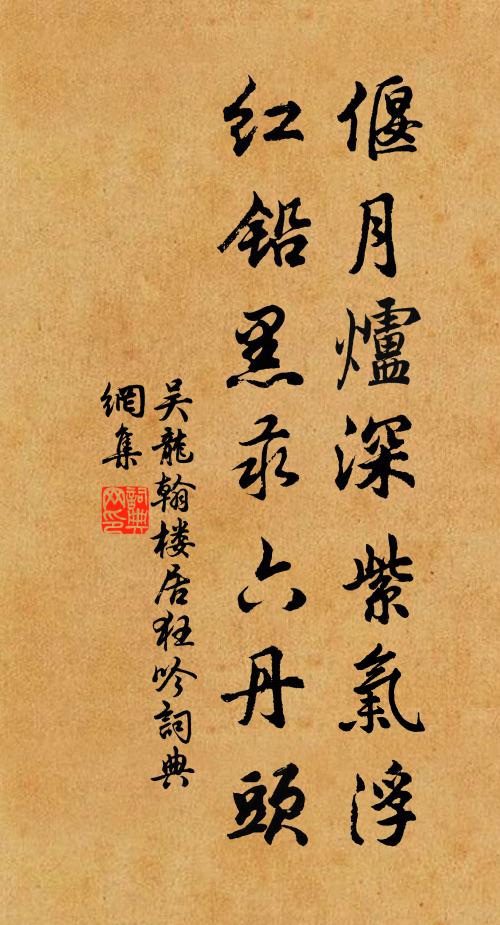 偃月爐深紫氣浮
红铅黑汞六丹頭
吴龍翰楼居狂吟詞典
網集
詞典
网印